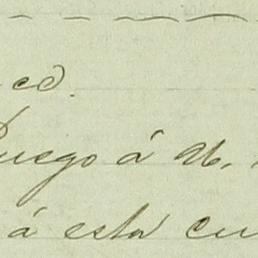 ed.
Ruego á U.
á esta cu